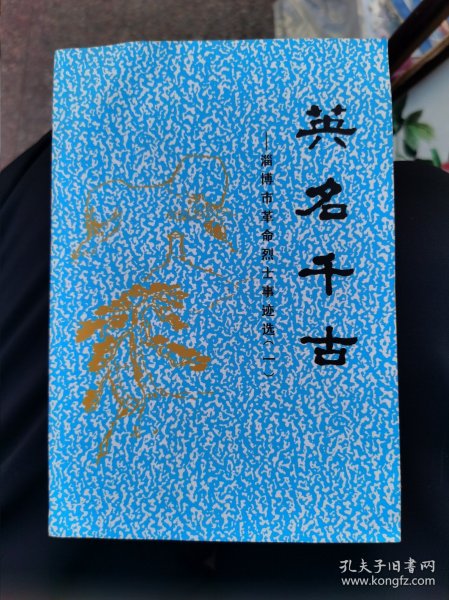 英名千古
——淄博市革命烈士事迹选（一）
孔夫子旧书网
www.kongfz.com